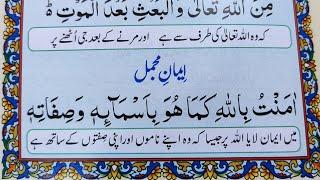 مِنَ اللهِ تَعَالٰى وَالْبَعْثِ بَعْدَ الْمَوْتِ ط
کہ وہ اللہ تعالیٰ کی طرف سے ہے اور مرنے کے بعد جی اُٹھنے پر
ایمانِ مجمل
اٰمَنْتُ بِاللهِ كَمَا هُوَ بِاَسْمَآئِهٖ وَصِفَاتِهٖ
میں ایمان لایا اللہ پر جیسا کہ وہ اپنے ناموں اور اپنی صفتوں کے ساتھ ہے